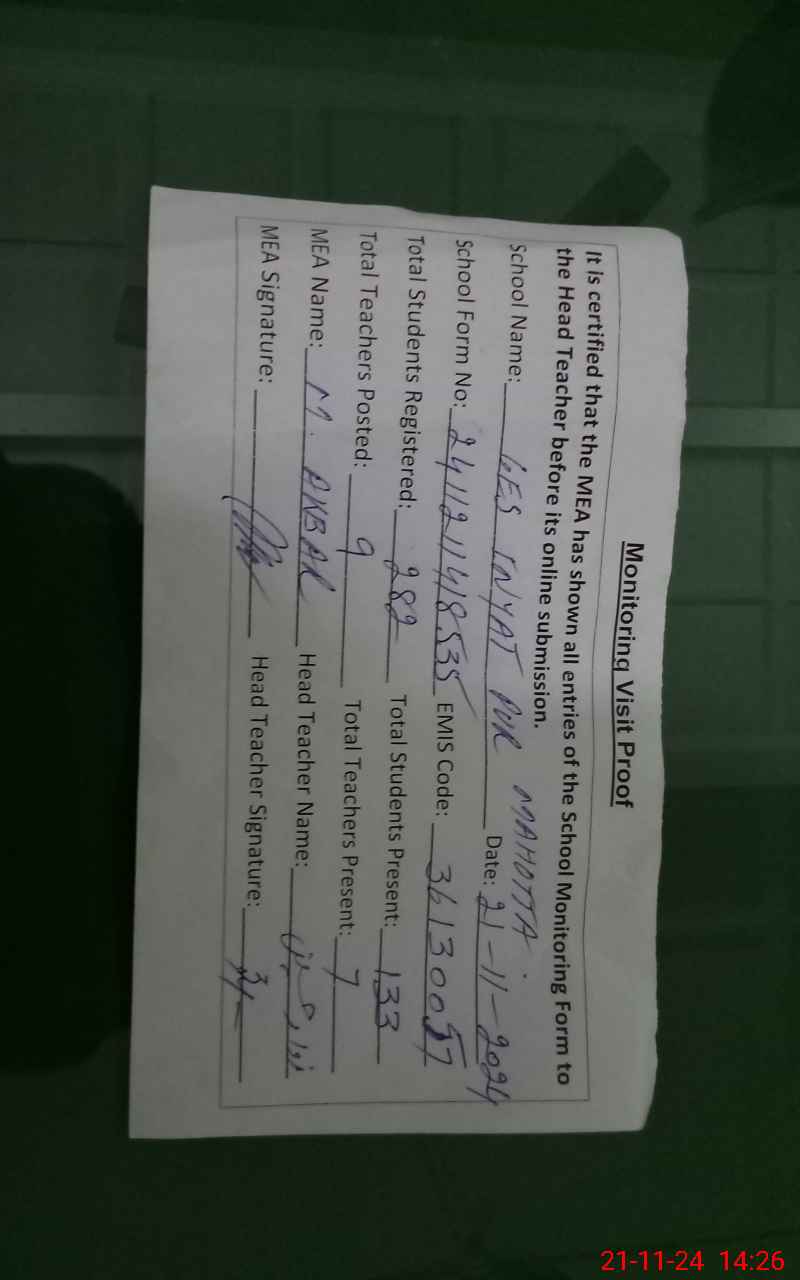 Monitoring Visit Proof
It is certified that the MEA has shown all entries of the School Monitoring Form to
the Head Teacher before its online submission.
School Name: GES INYAT PUR MAHOTTA. Date: 21-11-2024
School Form No: 2411211418535 EMIS Code: 36130057
Total Students Registered: 282 Total Students Present: 133
Total Teachers Posted: 9 Total Teachers Present: 7
MEA Name: M. AKBAR Head Teacher Name:
MEA Signature: Head Teacher Signature:
21-11-24 14:26